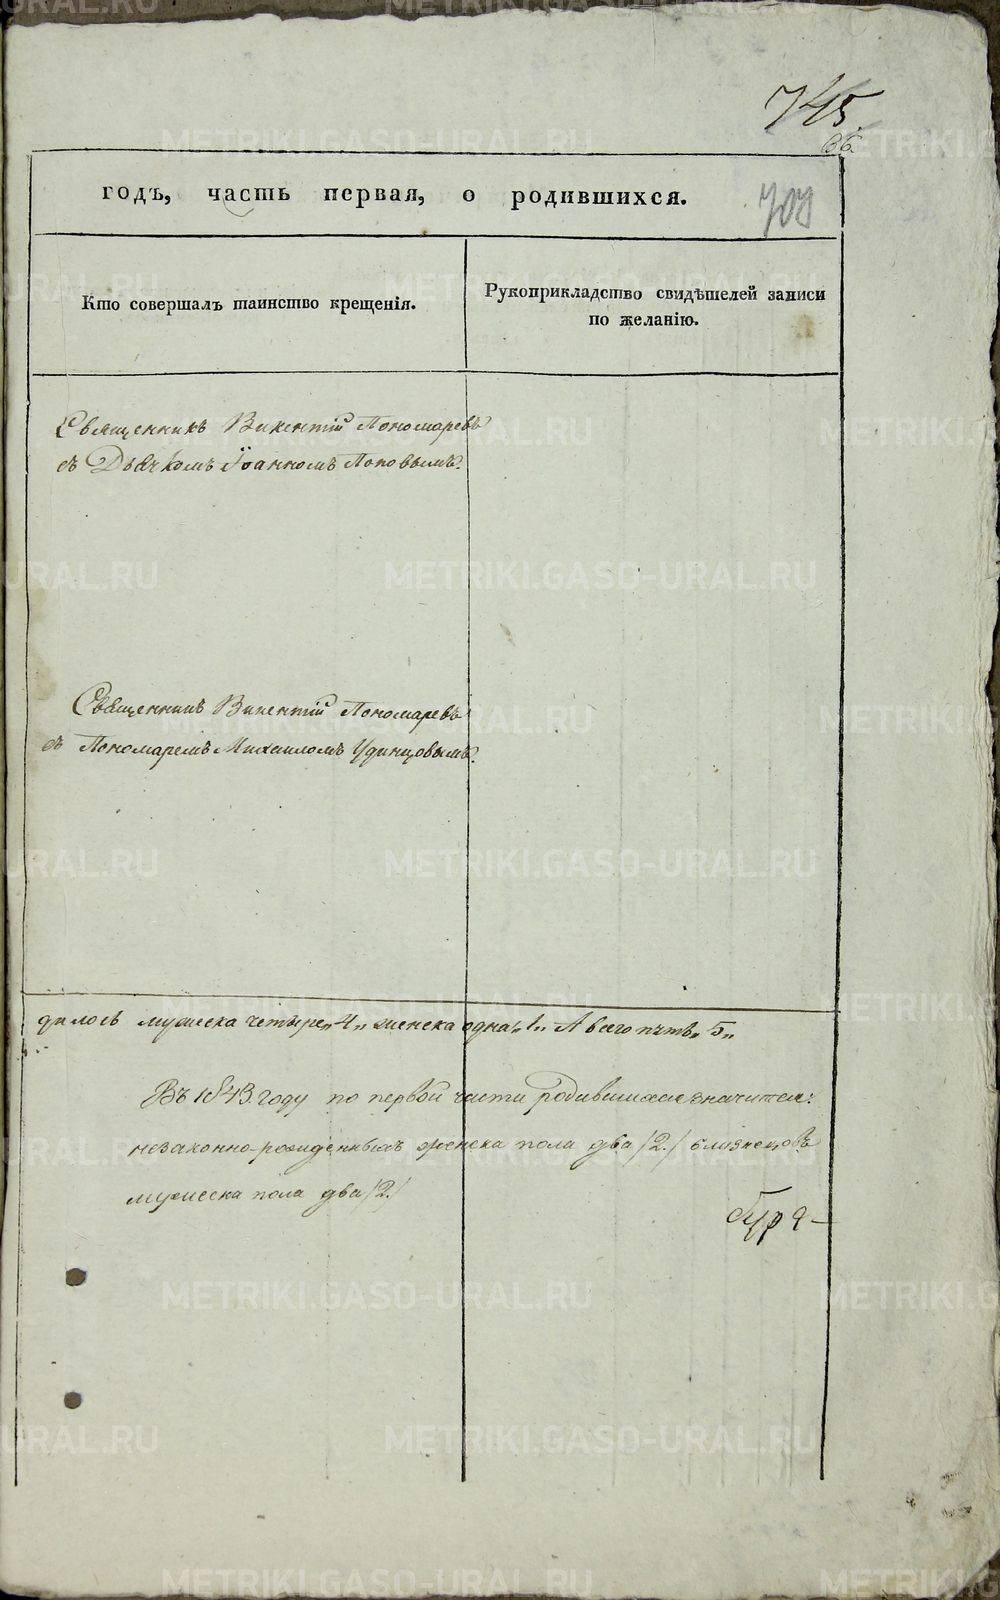 745.
66.
годъ, часть первая, о родившихся.
709
Кто совершалъ таинство крещенія.
Рукоприкладство свидѣтелей записи
по желанію.
Священникъ Викентій Пономаревъ
съ Дьячкомъ Іоанномъ Поповымъ.
Священникъ Викентій Пономаревъ
съ Пономаремъ Михаиломъ Удинцовымъ.
дилось мужеска четыре „4„ женска одна „1„ А всего пять „5„
Въ 1843. году по первой части родившихся значится:
незаконно-рожденныхъ женска пола два /2./ близнецовъ
мужеска пола два /2./
METRIKI.GASO-URAL.RU